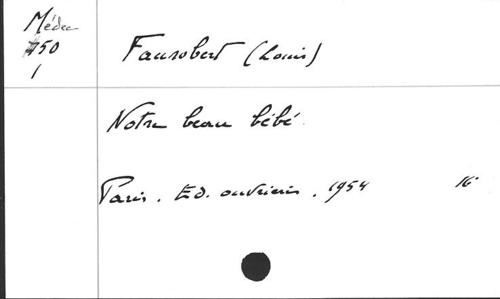 Médec
750
1
Faurobert (Louis)
Notre beau bébé.
Paris. Ed. ouvrières. 1954 16°